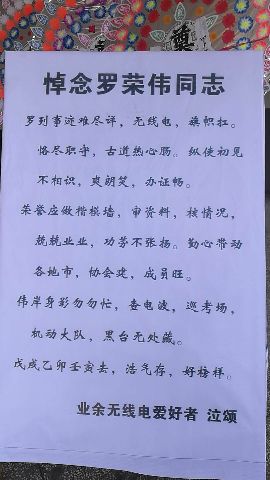 悼念罗荣伟同志
罗列事迹难尽详，无线电，旗帜扛。
恪尽职守，古道热心肠。纵使初见
不相识，爽朗笑，办证畅。
荣誉应做楷模墙，审资料，核情况，
兢兢业业，功劳不张扬。勤心带动
各地市，协会建，成员旺。
伟岸身影匆匆忙，查电波，巡考场，
机动大队，黑台无处藏。
戊戌乙卯壬寅去，浩气存，好榜样。
业余无线电爱好者 泣颂